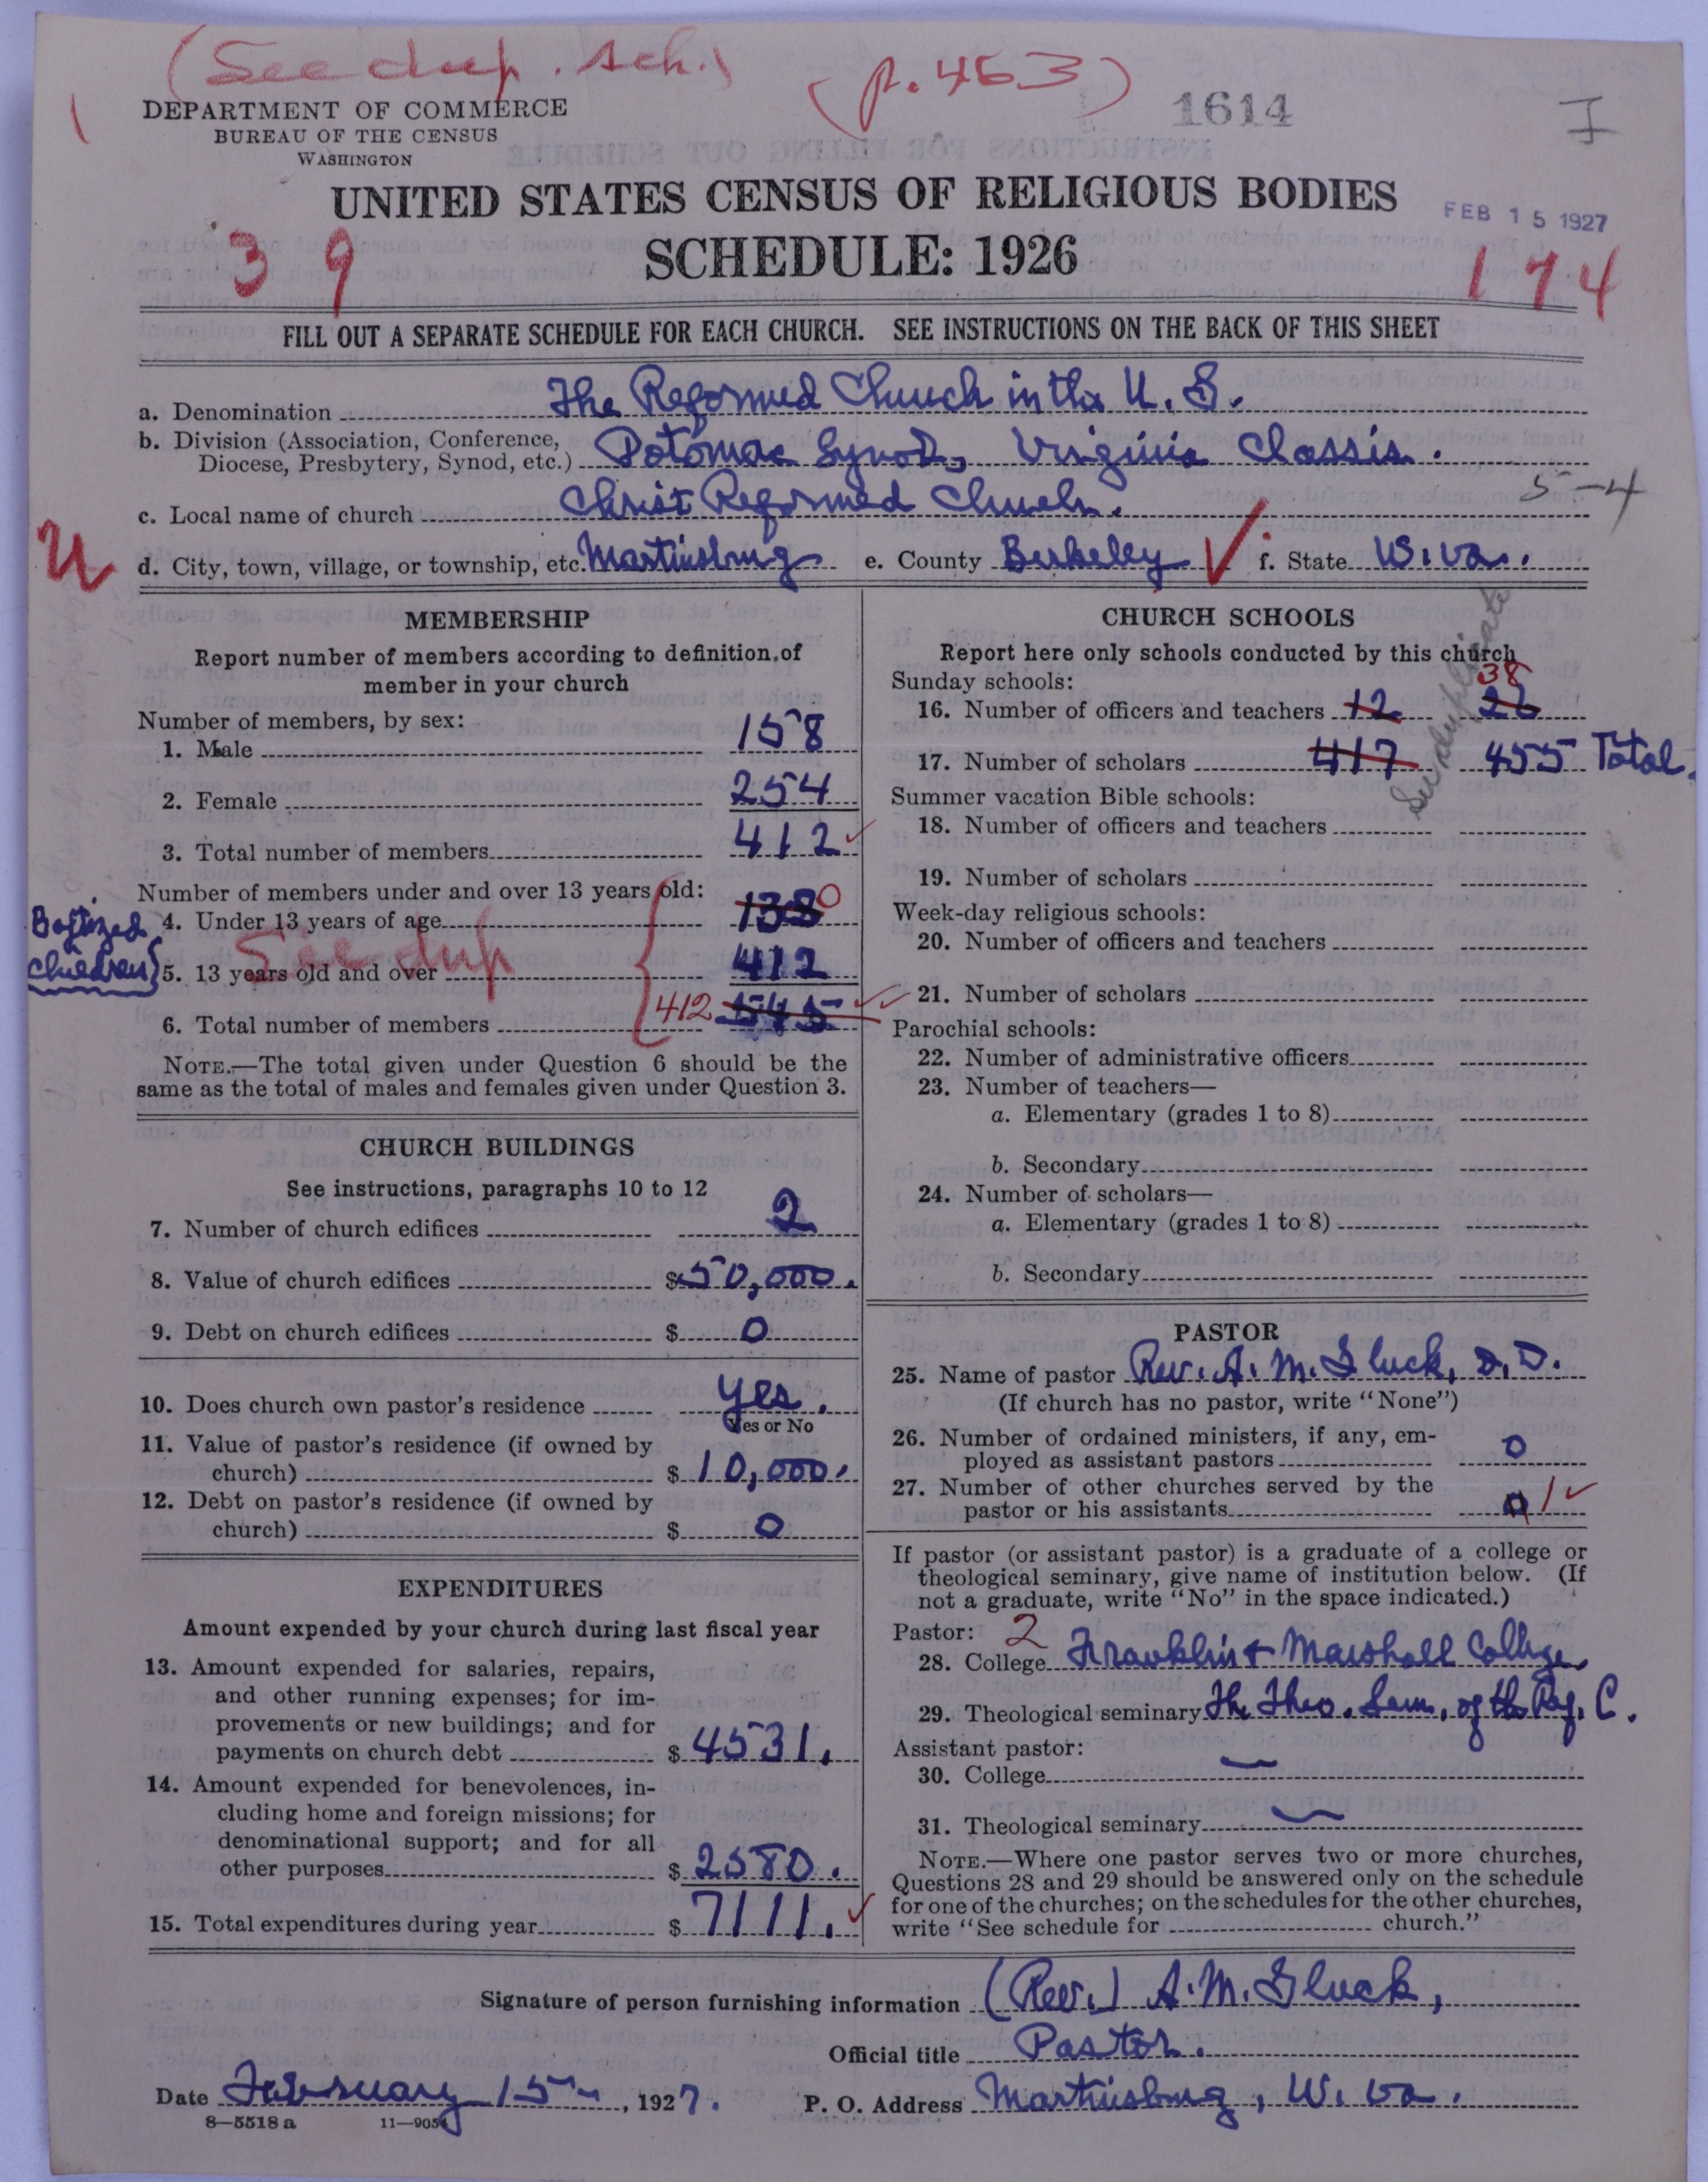 (See dup. sch.) (p. 463)
DEPARTMENT OF COMMERCE
BUREAU OF THE CENSUS
WASHINGTON
1614
I
UNITED STATES CENSUS OF RELIGIOUS BODIES
FEB 15 1927
SCHEDULE: 1926
39
174
FILL OUT A SEPARATE SCHEDULE FOR EACH CHURCH. SEE INSTRUCTIONS ON THE BACK OF THIS SHEET
a. Denomination The Reformed Church in the U. S.
b. Division (Association, Conference, Diocese, Presbytery, Synod, etc.) Potomac Synod, Virginia Classis.
5-4
c. Local name of church Christ Reformed Church.
U
d. City, town, village, or township, etc. Martinsburg e. County Berkeley ✓ f. State W. Va.
MEMBERSHIP
Report number of members according to definition of
member in your church
Number of members, by sex:
1. Male 158
2. Female 254
3. Total number of members 412 ✓
Number of members under and over 13 years old:
Baptized
Children
4. Under 13 years of age 138 0
See dup
5. 13 years old and over 412
6. Total number of members 412 545 ✓
NOTE.—The total given under Question 6 should be the
same as the total of males and females given under Question 3.
CHURCH BUILDINGS
See instructions, paragraphs 10 to 12
7. Number of church edifices 2
8. Value of church edifices $50,000.
9. Debt on church edifices $ 0
10. Does church own pastor's residence Yes.
Yes or No
11. Value of pastor's residence (if owned by
church) $ 10,000.
12. Debt on pastor's residence (if owned by
church) $ 0
EXPENDITURES
Amount expended by your church during last fiscal year
13. Amount expended for salaries, repairs,
and other running expenses; for im-
provements or new buildings; and for
payments on church debt $ 4531.
14. Amount expended for benevolences, in-
cluding home and foreign missions; for
denominational support; and for all
other purposes $ 2580.
15. Total expenditures during year $ 7111. ✓
CHURCH SCHOOLS
Report here only schools conducted by this church
See duplicate
Sunday schools:
38
16. Number of officers and teachers 12 26
17. Number of scholars 417 455 Total.
Summer vacation Bible schools:
18. Number of officers and teachers
19. Number of scholars
Week-day religious schools:
20. Number of officers and teachers
21. Number of scholars
Parochial schools:
22. Number of administrative officers
23. Number of teachers—
a. Elementary (grades 1 to 8)
b. Secondary
24. Number of scholars—
a. Elementary (grades 1 to 8)
b. Secondary
PASTOR
25. Name of pastor Rev. A. M. Gluck, D. D.
(If church has no pastor, write "None")
26. Number of ordained ministers, if any, em-
ployed as assistant pastors 0
27. Number of other churches served by the
pastor or his assistants 0 1 ✓
If pastor (or assistant pastor) is a graduate of a college or
theological seminary, give name of institution below. (If
not a graduate, write "No" in the space indicated.)
Pastor: 2
28. College Franklin & Marshall College.
29. Theological seminary The Theo. Sem. of the Ref. C.
Assistant pastor:
30. College —
31. Theological seminary —
NOTE.—Where one pastor serves two or more churches,
Questions 28 and 29 should be answered only on the schedule
for one of the churches; on the schedules for the other churches,
write "See schedule for church."
Signature of person furnishing information (Rev.) A. M. Gluck,
Official title Pastor.
Date February 15th, 1927. P. O. Address Martinsburg, W. Va.
8—5518 a 11—9051